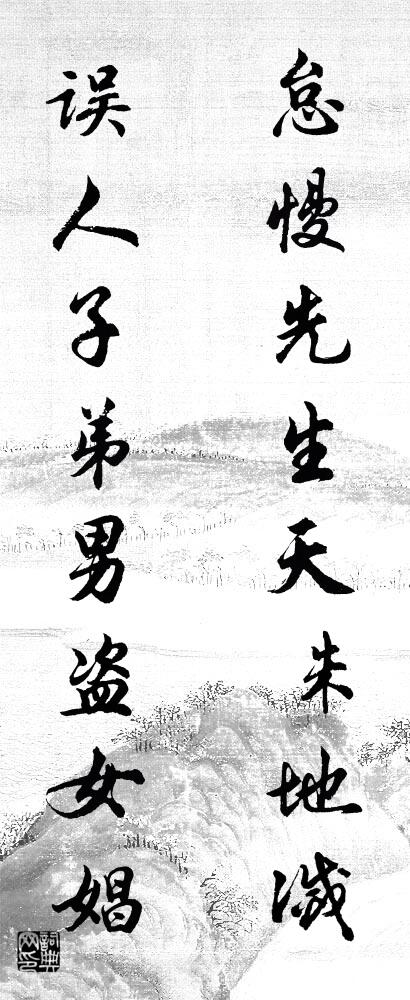 怠慢先生天朱地滅
误人子弟男盗女娼
詞典网印